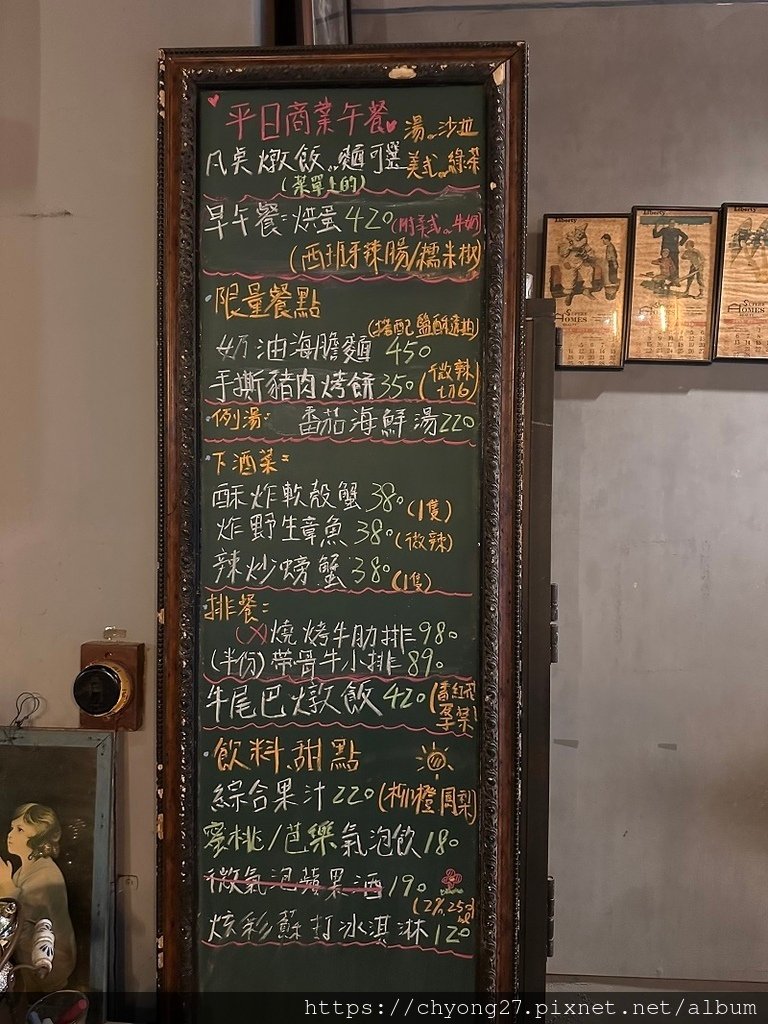 平日商業午餐 湯。沙拉
凡桌燉飯。麵可選 美式。綠茶
(菜單上的)
早午餐=烘蛋420(附美式。牛奶)
(西班牙辣腸/糯米椒)
·限量餐點
(搭配鹽酥
奶油海膽麵 450
手撕豬肉烤餅350(微辣
切
·例湯: 番茄海鮮湯220
·下酒菜=
酥炸軟殼蟹380(1隻)
炸野生章魚380(微辣)
辣炒螃蟹380(1隻)
·排餐=
(X)燒烤牛肋排=980
(半份)帶骨牛小排=890
牛尾巴燉飯420(番紅花
·飲料.甜點
綜合果汁220(柳橙 鳳梨)
蜜桃/芭樂氣泡飲180
微氣泡蘋果酒190
(2%.250
ml
炫彩蘇打冰淇淋120
Liberty
Liberty
Liberty
SUPERB HOMES
SUPERB HOMES
https://chyong27.pixnet.net/album